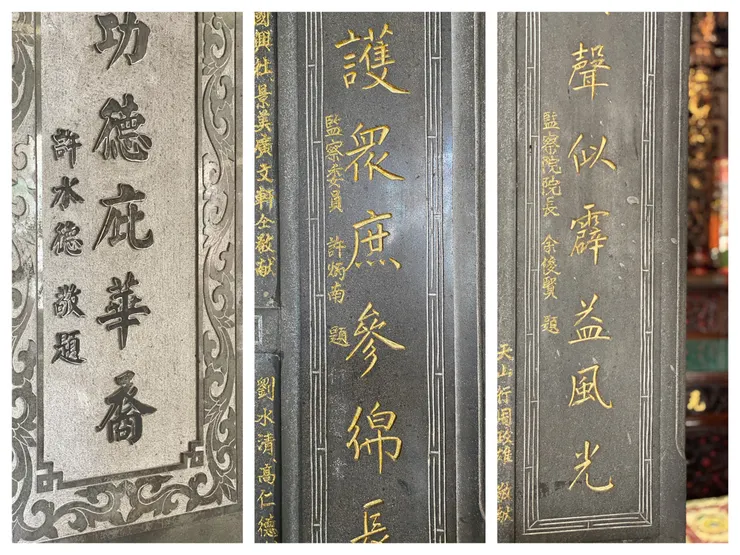 功德庇華裔
許水德 敬題
護眾庶參綿長
監察委員 許炳南 題
國興社 景美廣文軒 仝敬献
劉水清 高仁德
聲似霹益風光
監察院院長 余俊賢 題
天山行周政雄 敬献